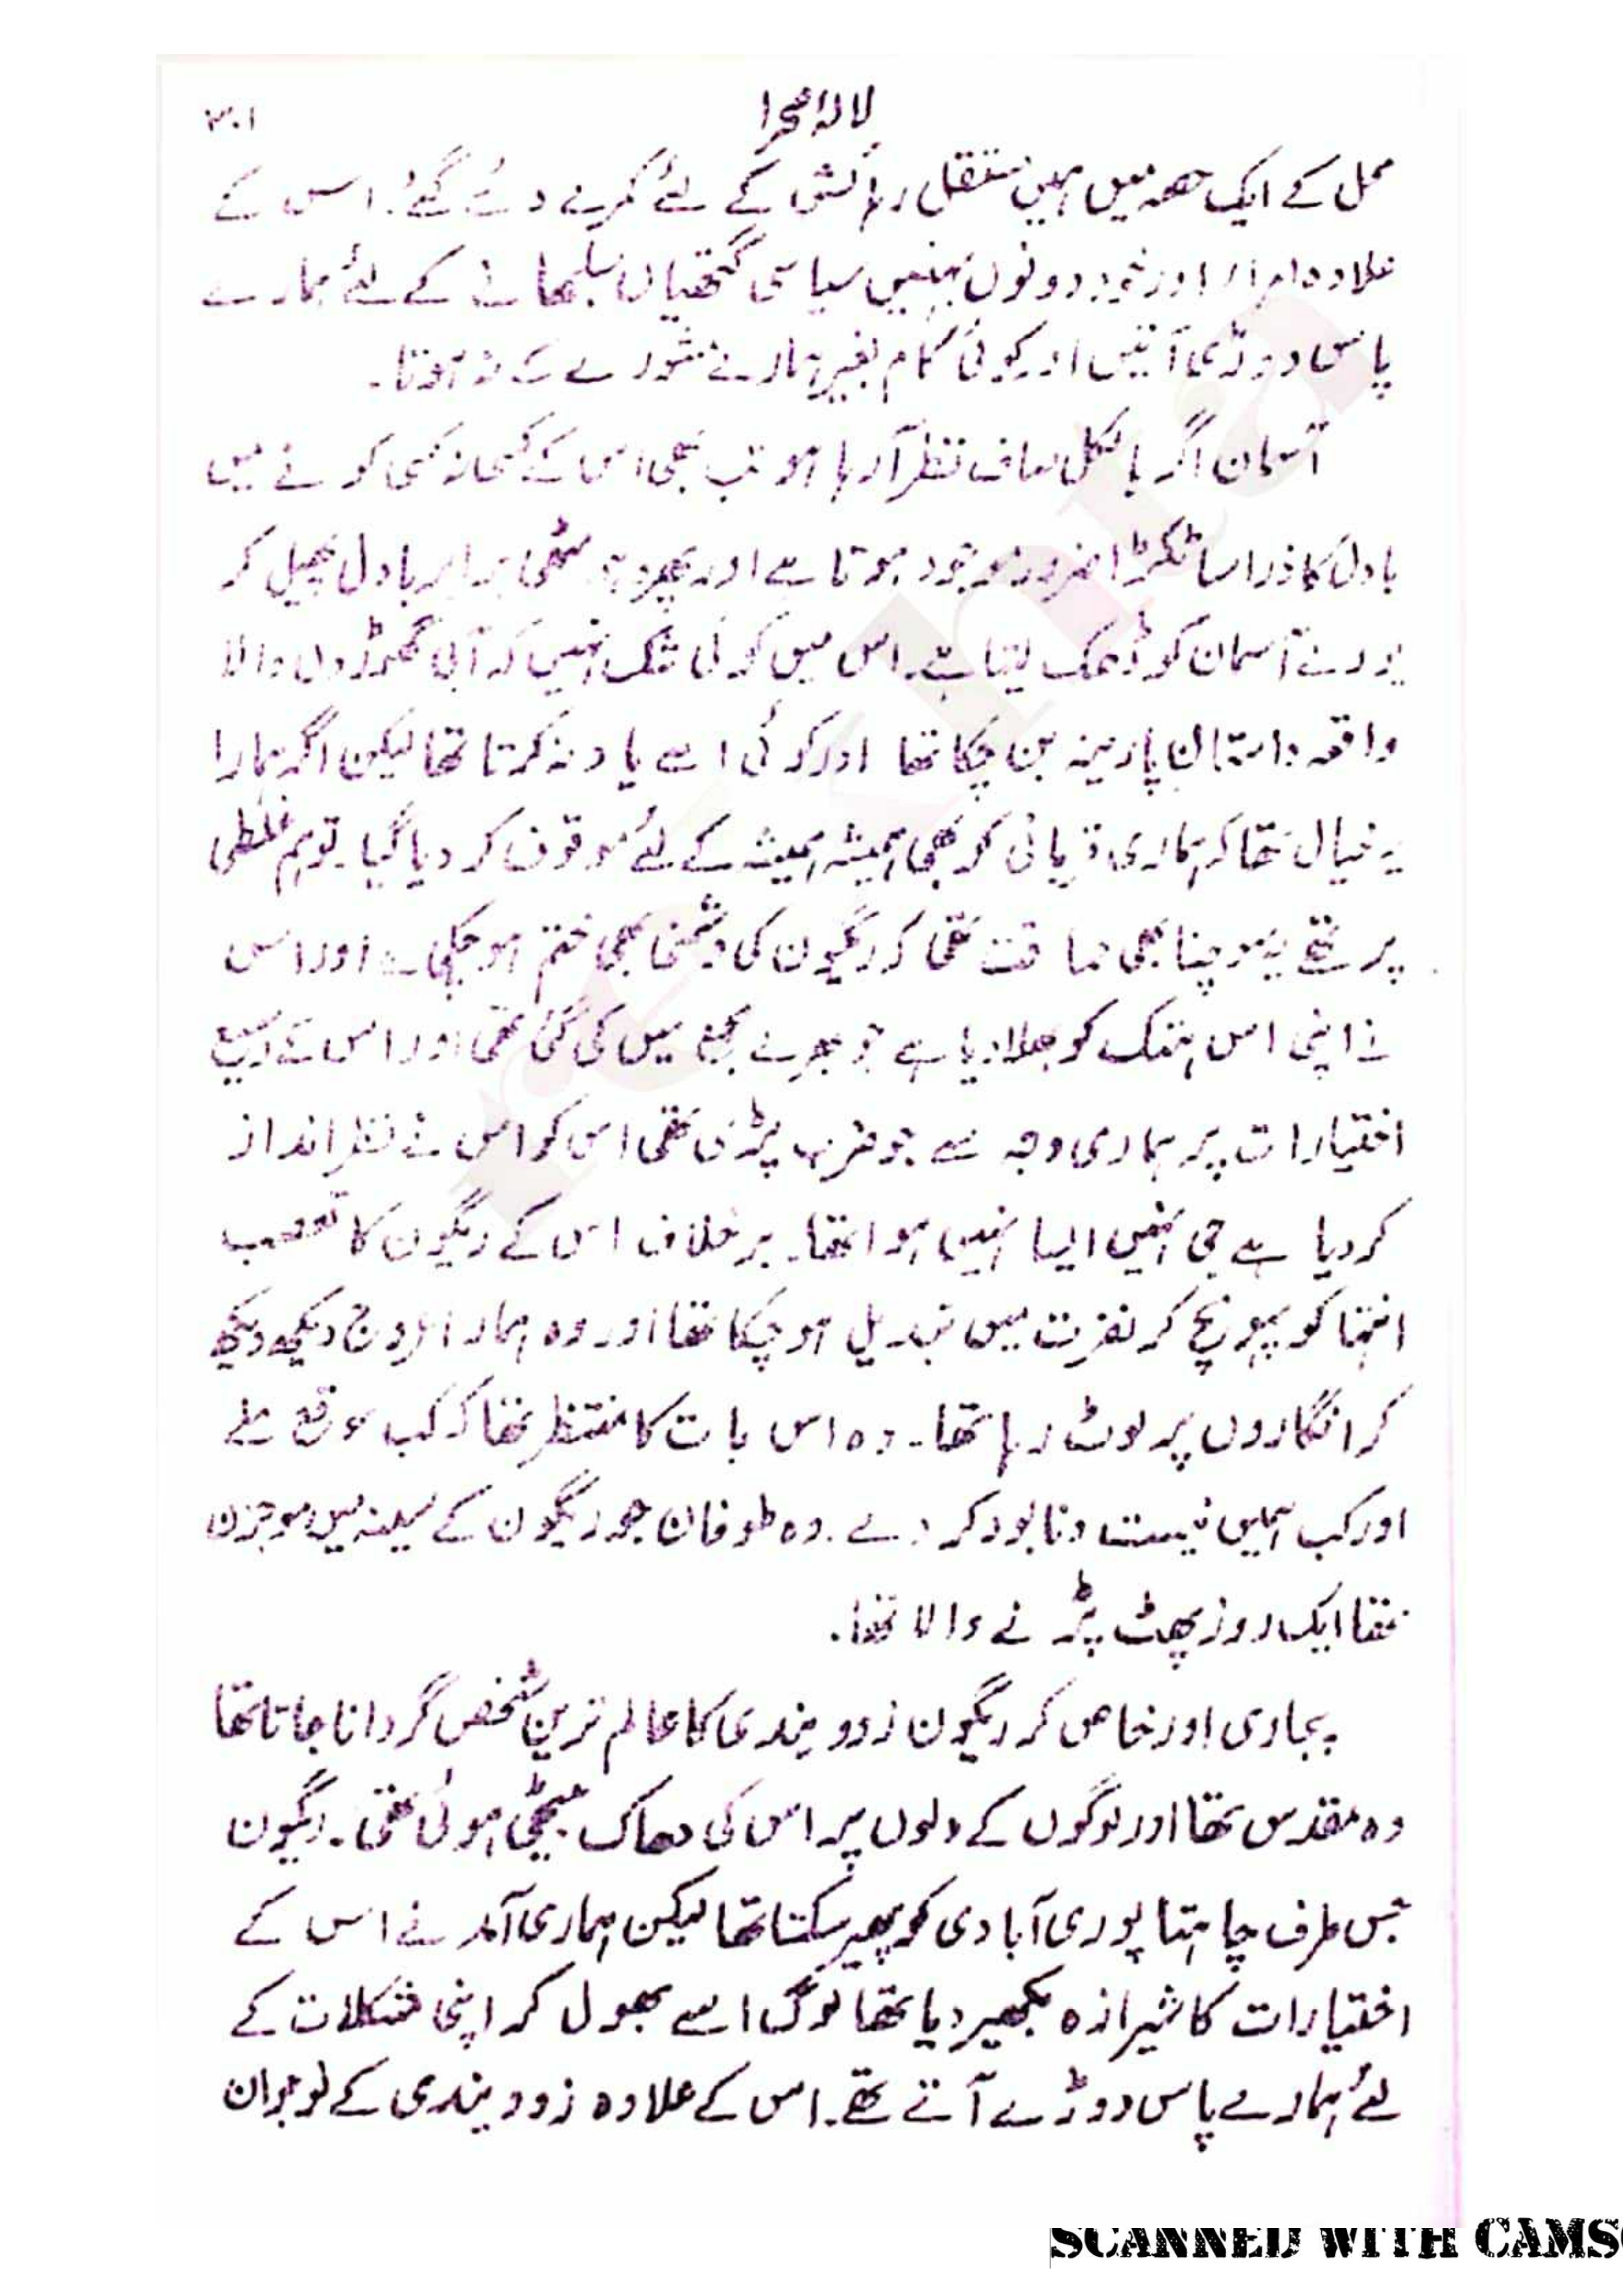 لالۂ صحرا ۳۰۱
محل کے ایک حصہ میں ہمیں مستقل رہائش کے لئے کمرے دئے گئے. اس کے
علاوہ امراء اور خود دونوں بہنیں سیاسی گتھیاں سلجھانے کے لئے ہمارے
پاس دوڑی آتیں اور کوئی کام بغیر ہمارے مشورے کے نہ ہوتا۔
آسمان اگر بالکل صاف نظر آ رہا ہو تب بھی اس کے کسی نہ کسی کونے میں
بادل کا ذرا سا ٹکڑا ضرور موجود ہوتا ہے اور پھر یہ مٹھی برابر بادل پھیل کر
پورے آسمان کو ڈھک لیتا ہے۔ اس میں کوئی شک نہیں کہ آبی گھوڑوں والا
واقعہ داستان پارینہ بن چکا تھا اور کوئی اسے یاد نہ کرتا تھا لیکن اگر ہمارا
یہ خیال تھا کہ ہماری قربانی کو بھی ہمیشہ ہمیشہ کے لئے موقوف کر دیا گیا۔ تو ہم غلطی
پر تھے یہ سوچنا بھی حماقت تھی کہ ریگون کی دشمنی بھی ختم ہو چکی ہے اور اس
نے اپنی اس ہتک کو بھلا دیا ہے جو بھرے مجمع میں کی گئی تھی اور اس کے وسیع
اختیارات پر ہماری وجہ سے جو ضرب پڑی تھی اس کو اس نے نظر انداز
کر دیا ہے جی نہیں ایسا نہیں ہوا تھا۔ برخلاف اس کے ریگون کا تعصب
انتہا کو پہونچ کر نفرت میں تبدیل ہو چکا تھا اور وہ ہمارا عروج دیکھ دیکھ
کر انگاروں پر لوٹ رہا تھا۔ وہ اس بات کا منتظر تھا کہ کب موقع ملے
اور کب ہمیں نیست و نابود کر دے۔ وہ طوفان جو ریگون کے سینہ میں موجزن
تھا ایک روز پھٹ پڑنے والا تھا۔
پجاری اور خاص کر ریگون زوویندی کا عالم ترین شخص گردانا جاتا تھا
وہ مقدس تھا اور لوگوں کے دلوں پر اس کی دھاک بیٹھی ہوئی تھی۔ ریگون
جس طرف چاہتا پوری آبادی کو پھیر سکتا تھا لیکن ہماری آمد نے اس کے
اختیارات کا شیرازہ بکھیر دیا تھا لوگ اسے بھول کر اپنی مشکلات کے
لئے ہمارے پاس دوڑے آتے تھے۔ اس کے علاوہ زوویندی کے نوجوان
SCANNED WITH CAMS